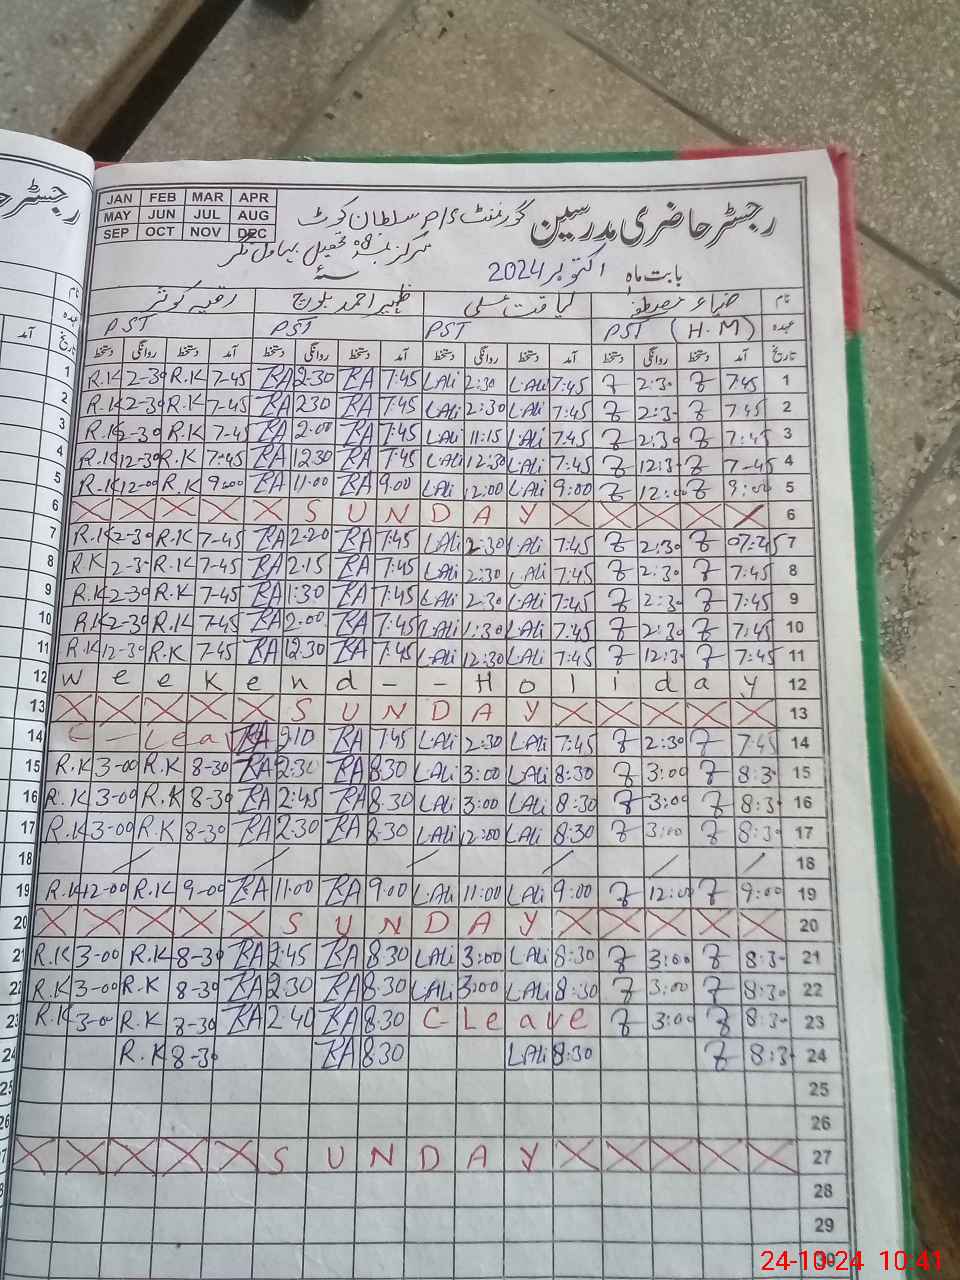 JAN FEB MAR APR
MAY JUN JUL AUG
SEP OCT NOV DEC
رجسٹر حاضری مدرسین گورنمنٹ سلطان کوٹ
مرکز تحصیل بہاول نگر
بابت ماہ اکتوبر 2024
نام ضیاء مصطفیٰ لیاقت علی ظہیر احمد بلوچ رقیہ کوثر
عہدہ PST (H.M) PST PST PST
تاریخ آمد دستخط روانگی دستخط آمد دستخط روانگی دستخط آمد دستخط روانگی دستخط آمد دستخط روانگی دستخط
R.K 2-30 R.K 7-45 BA 2:30 BA 7:45 L.Ali 2:30 L.Ali 7:45 2:30 7:45 1
R.K 2-30 R.K 7-45 BA 230 BA 7:45 L.Ali 2:30 L.Ali 7:45 2:3- 7:45 2
R.K 2-30 R.K 7-45 BA 2:00 BA 7:45 L.Ali 11:15 L.Ali 7:45 2:30 7:45 3
R.K 12-30 R.K 7:45 BA 1230 BA 7:45 L.Ali 12:30 L.Ali 7:45 12:3- 7-45 4
R.K 12-00 R.K 9:00 BA 11:00 BA 9:00 L.Ali 12:00 L.Ali 9:00 12:00 9:00 5
X X X X X S U N D A Y X X X X X 6
R.K 2-30 R.K 7-45 BA 2:20 BA 7:45 L.Ali 2:30 L.Ali 7:45 2:30 07:45 7
R.K 2-3- R.K 7-45 BA 2:15 BA 7:45 L.Ali 2:30 L.Ali 7:45 2:30 7:45 8
R.K 2-30 R.K 7-45 BA 1:30 BA 7:45 L.Ali 2:30 L.Ali 7:45 2:3- 7:45 9
R.K 2-30 R.K 7-45 BA 2:00 BA 7:45 L.Ali 1:30 L.Ali 7:45 2:30 7:45 10
R.K 12-30 R.K 7-45 BA 12:30 BA 7:45 L.Ali 12:30 L.Ali 7:45 12:30 7:45 11
W e e K e n d - - H o l i d a y 12
X X X X X S U N D A Y X X X X X 13
C - Leave BA 2:10 BA 7:45 L.Ali 2:30 L.Ali 7:45 2:30 7:45 14
R.K 3-00 R.K 8-30 BA 2:30 BA 8:30 L.Ali 3:00 L.Ali 8:30 3:00 8:3- 15
R.K 3-00 R.K 8-30 BA 2:45 BA 8.30 L.Ali 3:00 L.Ali 8:30 3:00 8:3- 16
R.K 3-00 R.K 8-30 BA 2:30 BA 8:30 L.Ali 12:00 L.Ali 8:30 3:00 8:3- 17
/ / / / / / 18
R.K 12-00 R.K 9-00 BA 11:00 BA 9:00 L.Ali 11:00 L.Ali 9:00 12:00 9:00 19
X X X X X S U N D A Y X X X X X 20
R.K 3-00 R.K 8-30 BA 2:45 BA 8:30 L.Ali 3:00 L.Ali 8:30 3:00 8:3- 21
R.K 3-00 R.K 8-30 BA 2:30 BA 8:30 L.Ali 3:00 L.Ali 8:30 3:00 8:30 22
R.K 3-00 R.K 8-30 BA 2:40 BA 8:30 C-Leave 3:00 8:3- 23
R.K 8-30 BA 8:30 L.Ali 8:30 8:3- 24
25
26
X X X X X S U N D A Y X X X X X 27
28
29
30
24-10-24 10:41